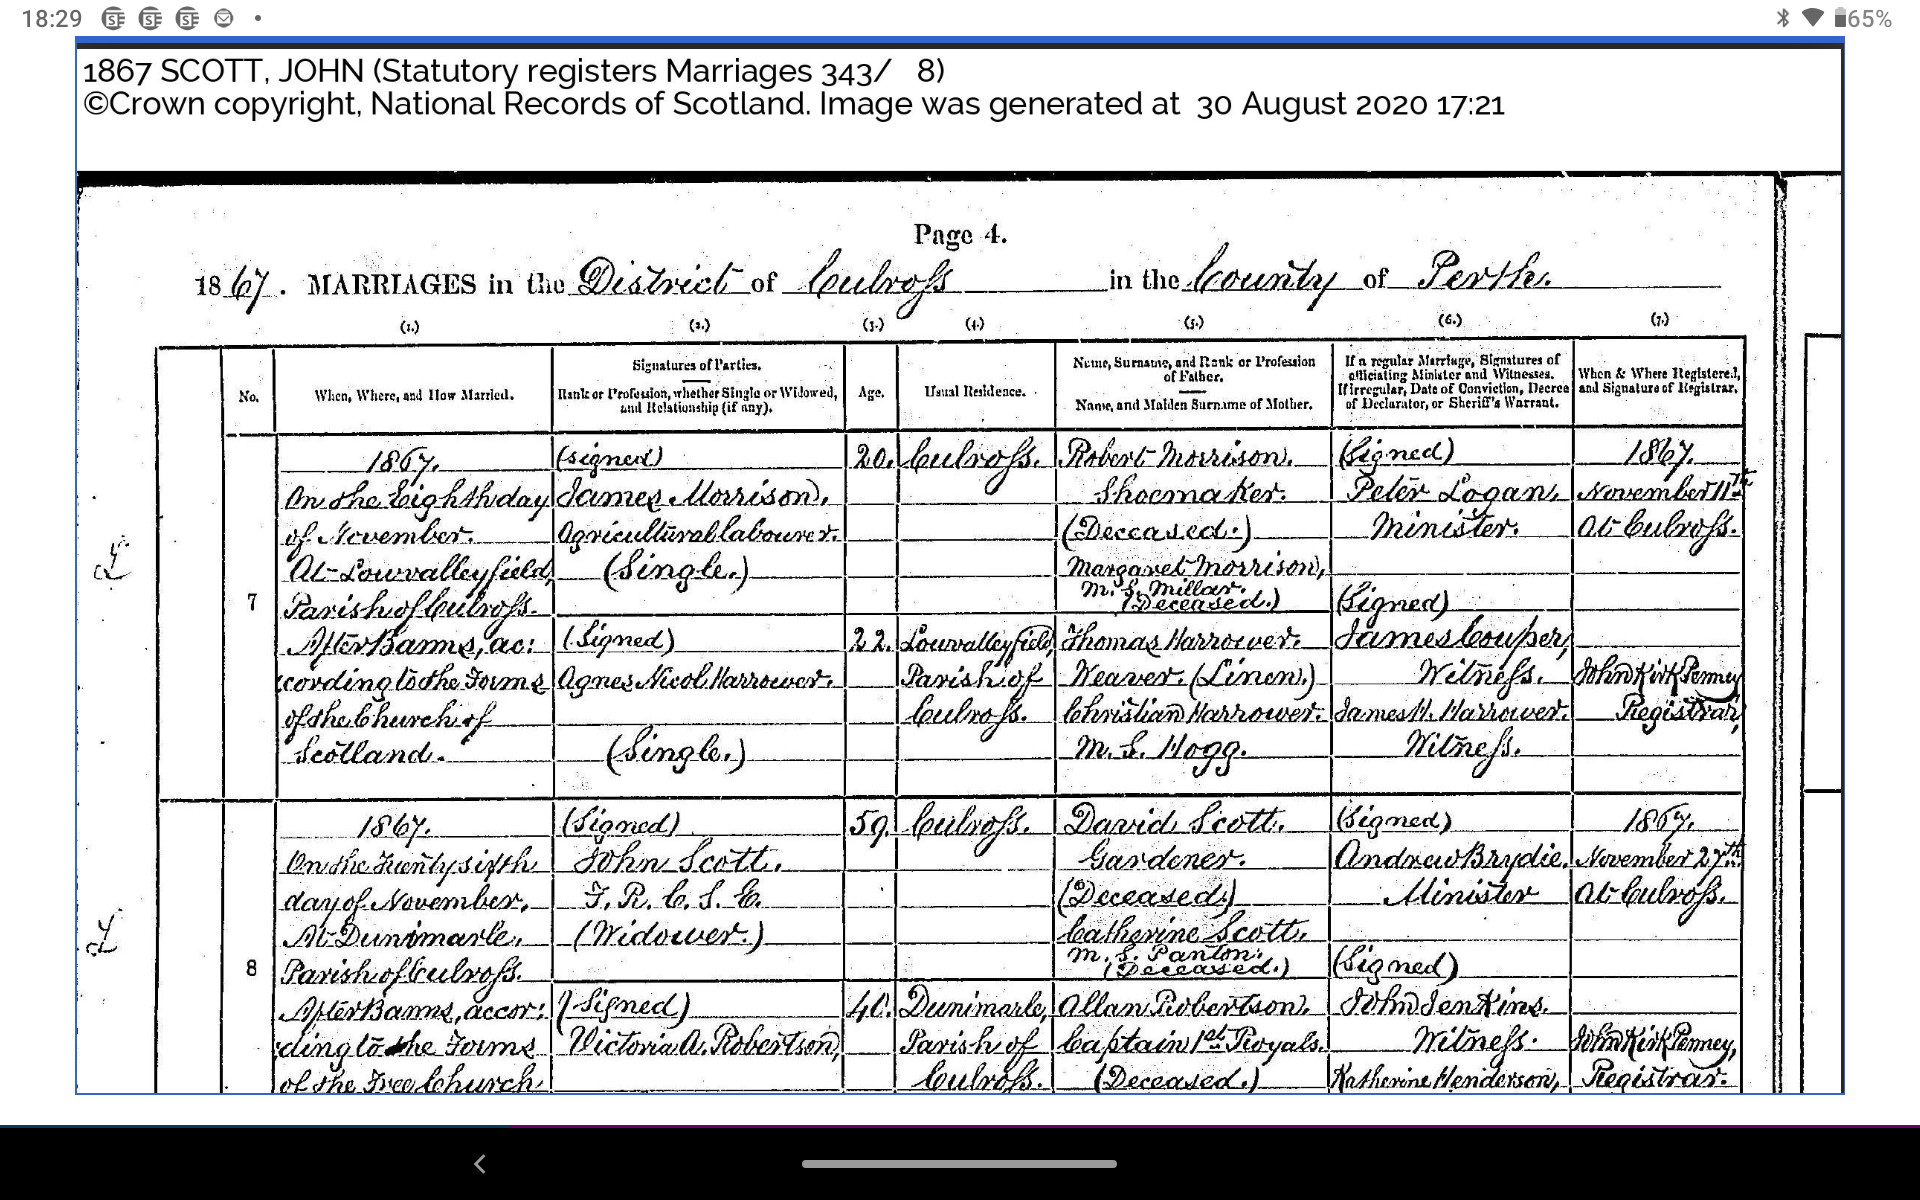 18:29
65%
1867 SCOTT, JOHN (Statutory registers Marriages 343/ 8)
©Crown copyright, National Records of Scotland. Image was generated at 30 August 2020 17:21
Page 4.
1867. MARRIAGES in the District of Culross in the County of Perth.
(1.) (2.) (3.) (4.) (5.) (6.) (7.)
No.
When, Where, and How Married.
Signatures of Parties.
Rank or Profession, whether Single or Widowed,
and Relationship (if any).
Age.
Usual Residence.
Name, Surname, and Rank or Profession
of Father.
Name, and Maiden Surname of Mother.
If a regular Marriage, Signatures of
officiating Minister and Witnesses.
If irregular, Date of Conviction, Decree
of Declarator, or Sheriff's Warrant.
When & Where Registered,
and Signature of Registrar.
7
1867.
On the Eighth day
of November.
At Lowvalleyfield,
Parish of Culross.
After Banns, ac:
cording to the Forms
of the Church of
Scotland.
(signed)
James Morrison,
Agricultural labourer.
(Single.)
(Signed)
Agnes Nicol Harrower.
(Single.)
20.
22.
Culross.
Lowvalleyfield,
Parish of
Culross.
Robert Morrison.
Shoemaker.
(Deceased.)
Margaret Morrison,
M.S. Millar.
(Deceased.)
Thomas Harrower.
Weaver. (Linen.)
Christian Harrower.
M.S. Hogg.
(Signed)
Peter Logan,
Minister.
(Signed)
James Couper,
Witness.
James H. Harrower.
Witness.
1867.
November 11th
At Culross.
John Kirk Penney
Registrar,
8
1867.
On the Twenty sixth
day of November.
At Dunimarle,
Parish of Culross.
After Banns, accor:
ding to the Forms
of the Free Church
(Signed)
John Scott.
F. R. C. S. E.
(Widower.)
(Signed)
Victoria A. Robertson,
59.
40.
Culross.
Dunimarle,
Parish of
Culross.
David Scott.
Gardener.
(Deceased)
Catherine Scott.
M.S. Panton.
(Deceased.)
Allan Robertson.
Captain 1st Royals.
(Deceased.)
(Signed)
Andrew Brydie.
Minister
(Signed)
John Jenkins.
Witness.
Katherine Henderson,
1867.
November 27th
At Culross.
John Kirk Penney,
Registrar.